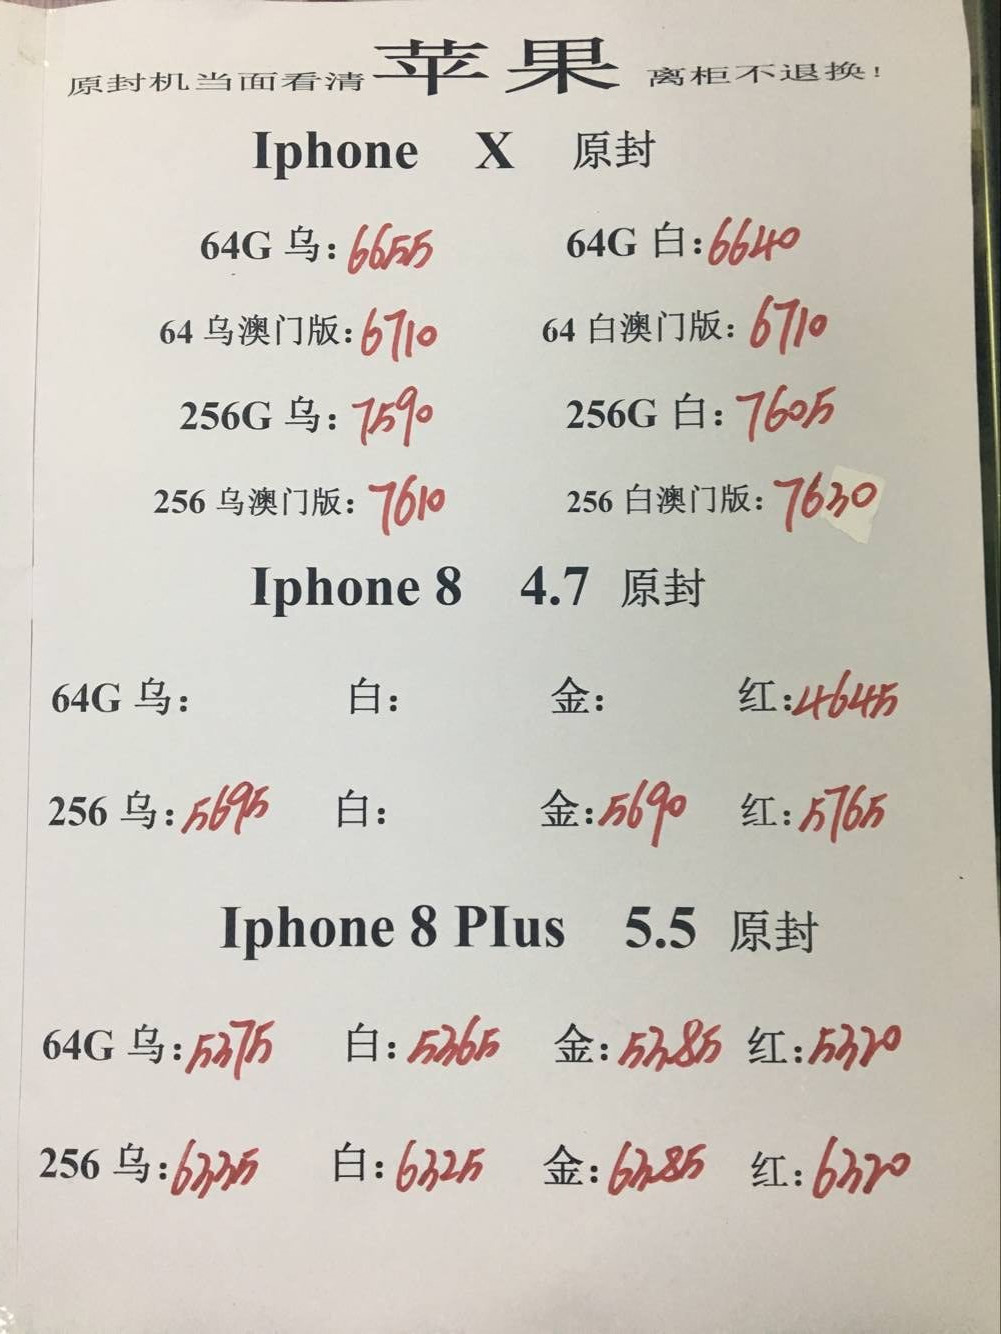 原封机当面看清 苹果 离柜不退换!
Iphone X 原封
64G 乌:6655 64G 白:6640
64 乌澳门版:6710 64 白澳门版:6710
256G 乌:7590 256G 白:7605
256 乌澳门版:7610 256 白澳门版:7630
Iphone 8 4.7 原封
64G 乌: 白: 金: 红:4645
256 乌:5695 白: 金:5690 红:5765
Iphone 8 PIus 5.5 原封
64G 乌:5375 白:5365 金:5385 红:5320
256 乌:6335 白:6325 金:6385 红:6320